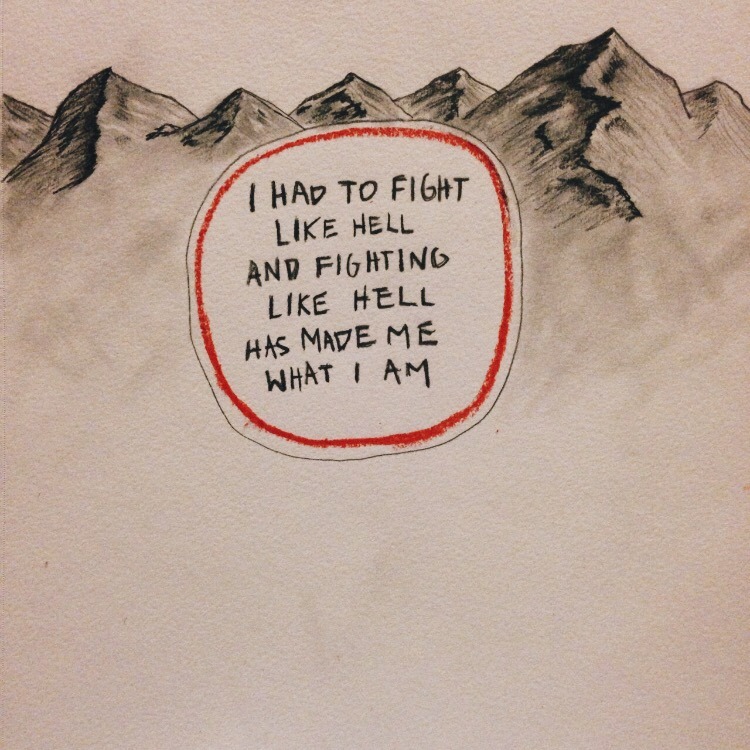 I HAD TO FIGHT
LIKE HELL
AND FIGHTING
LIKE HELL
HAS MADE ME
WHAT I AM